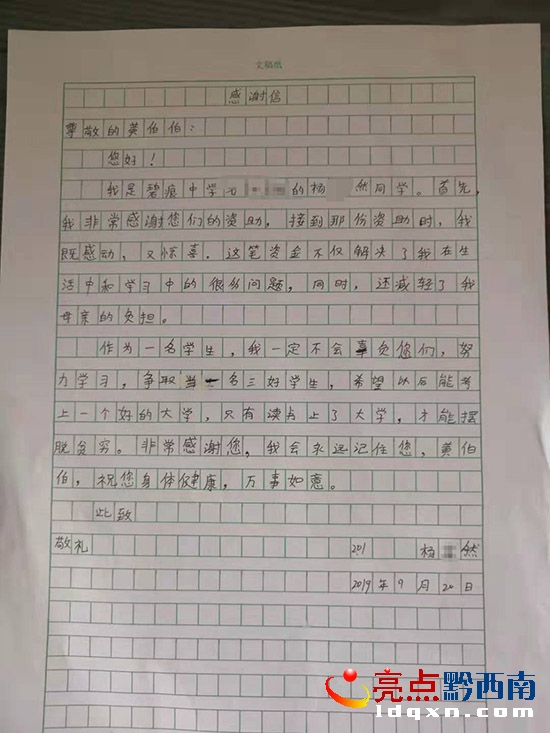 文稿纸
感谢信
尊敬的黄伯伯：
您好！
我是碧痕中学的杨然同学。首先，
我非常感谢您们的资助，接到那份资助时，我
既感动，又惊喜．这笔资金不仅解决了我在生
活中和学习中的很多问题，同时，还减轻了我
母亲的负担。
作为一名学生，我一定不会负您们，努
力学习，争取当一名三好学生，希望以后能考
上一个好的大学，只有读书上了大学，才能摆
脱贫穷。非常感谢您，我会永远记住您，黄伯
伯，祝您身体健康，万事如意。
此致
敬礼 201 杨然
2019年9月20日
亮点黔西南
ldqxn.com